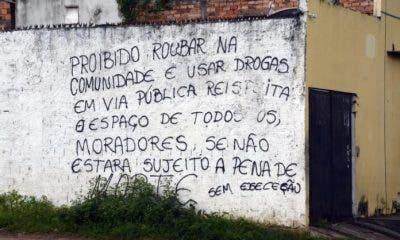 PROIBIDO ROUBAR NA
COMUNIDADE E USAR DROGAS
EM VIA PÚBLICA REISPEITA
O ESPAÇO DE TODOS OS,
MORADORES, SE NÃO
ESTARA SUJEITO A PENA DE
MORTE SEM ESECEÇÃO